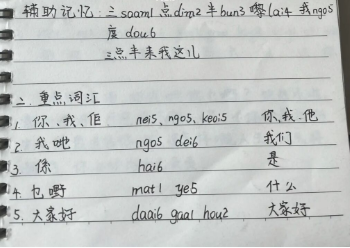 辅助记忆:三saam1点dim2半bun3嚟lai4我ngo5
度dou6
三点半来我这儿
二、重点词汇
1、你、我、佢 nei5、ngo5、keoi5 你、我、他
2、我哋 ngo5 dei6 我们
3、係 hai6 是
4、乜嘢 mat1 ye5 什么
5、大家好 daai6 gaa1 hou2 大家好